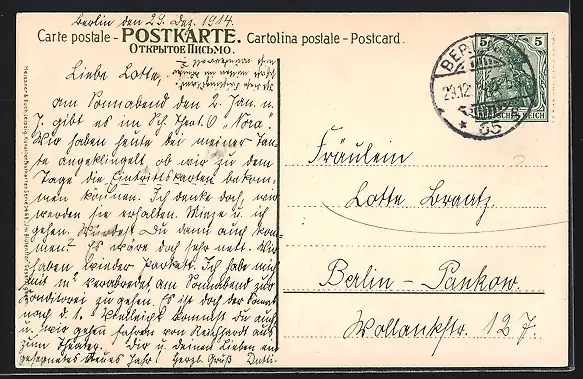 Berlin den 29. Dez. 1914.
Carte postale - POSTKARTE. Cartolina postale - Postcard.
ОТКРЫТОЕ ПИСЬМО.
Liebe Lotte,
am Sonnabend den 2. Jan. u.
7. gibt es im Sch. Theat. O „Nora“
Wir haben heute bei meiner Tan-
te angeklingelt ob wir zu dem
Tage die Eintrittskarten bekom-
men können. Ich denke doch, wir
werden sie erhalten. Mieze u. ich
gehen. Würdest Du dann auch kom-
men? Es wäre doch sehr nett. Wir
haben wieder Parkett. Ich habe mich
mit verabredet, am Sonnabend zur
Konditorei zu gehen. Es ist doch der Sonnat
nach d. 1. Vielleicht kommst Du auch
u. wir gehen fahren von Reichhardt aus
zum Theater. Dir u. deinen Lieben ein
gesegnetes Neues Jahr! Herzl. Gruß
BERLIN
29.12
65
5 5
DEUTSCHES REICH
Fräulein
Lotte Braatz,
Berlin - Pankow.
Wollankstr. 127.